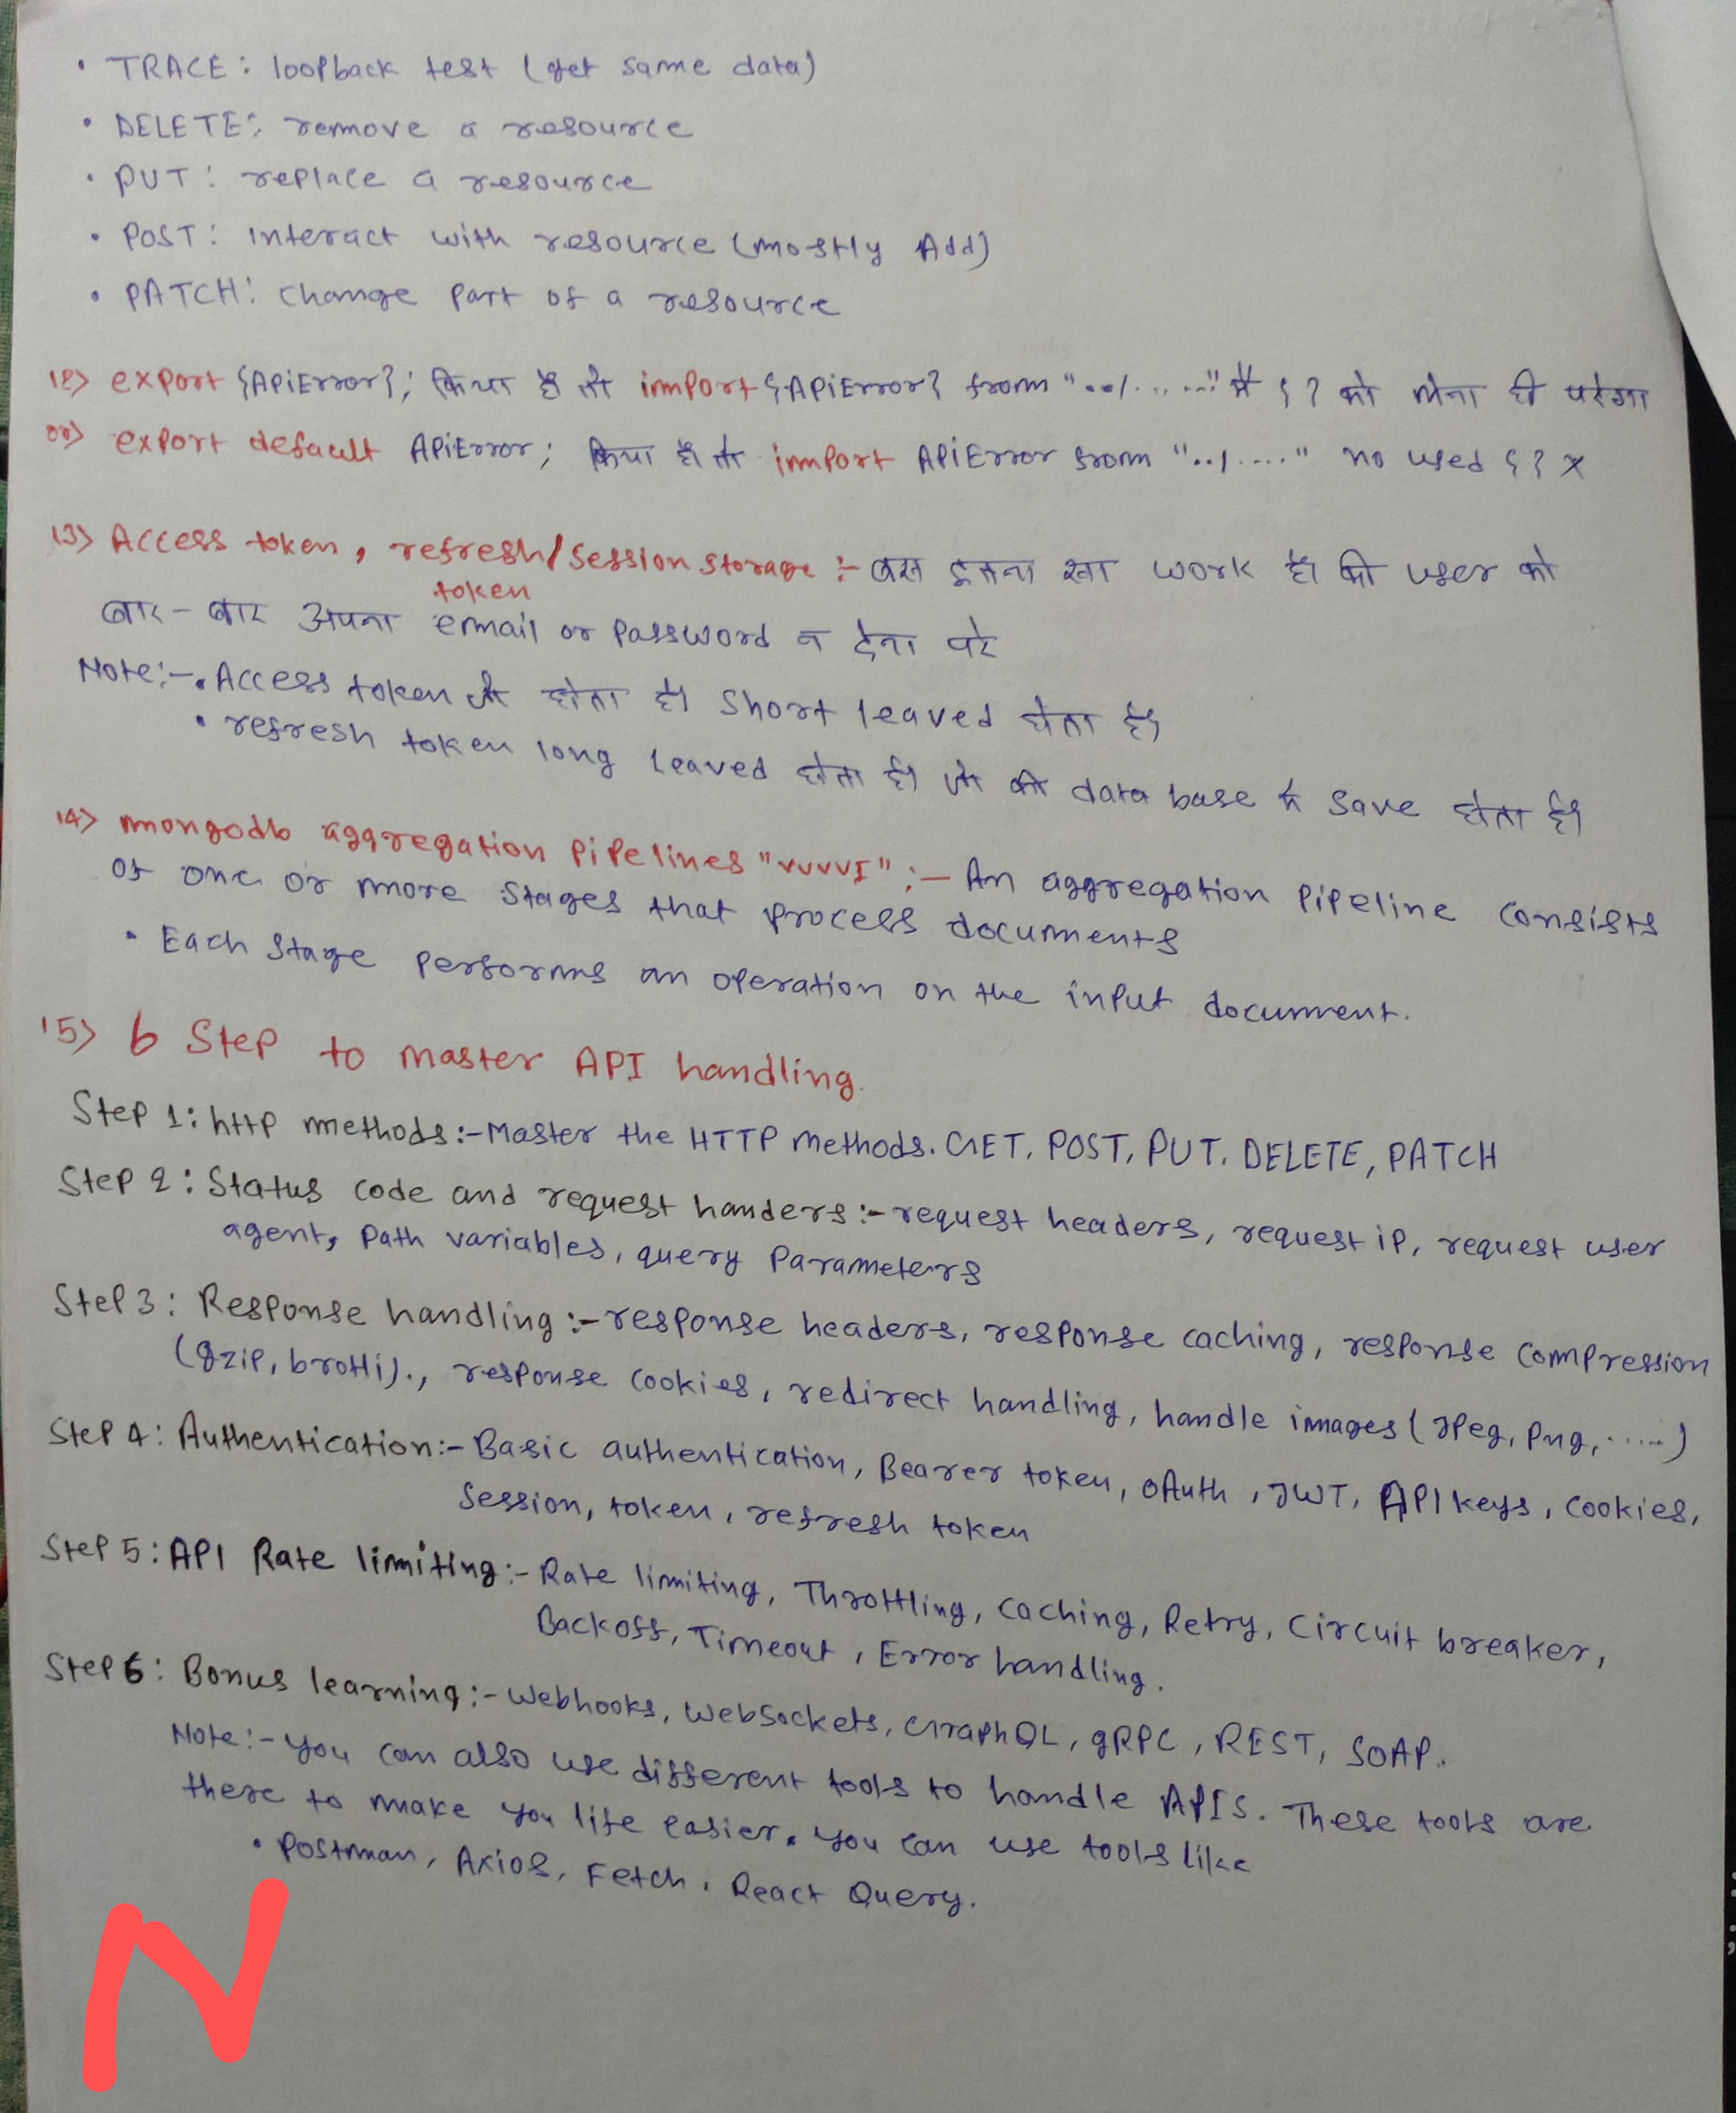 • TRACE: loopback test (get same data)
• DELETE: remove a resource
• PUT: replace a resource
• POST: interact with resource (mostly Add)
• PATCH: change part of a resource
12) export {ApiError}; किया है तो import {ApiError} from "../......" में { } को लेना ही परेगा
or) export default ApiError; किया है तो import ApiError from "../...." no used { } x
13) Access token, refresh/session storage :- बस इतना सा work है। की user को
token
बार-बार अपना email or password न देना परे
Note:- • Access token जो होता है। short leaved होता है।
• refresh token long leaved होता है। जो की data base में save होता है।
14) mongodb aggregation pipelines "vvvvI" :- An aggregation pipeline consists
of one or more stages that process documents
• Each stage performs an operation on the input document.
15) 6 Step to master API handling.
Step 1: http methods:- Master the HTTP methods. GET, POST, PUT, DELETE, PATCH
Step 2: Status code and request handers:- request headers, request ip, request user
agent, path variables, query parameters
Step 3: Response handling:- response headers, response caching, response compression
(gzip, brotli)., response cookies, redirect handling, handle images (Jpeg, png,.....)
Step 4: Authentication:- Basic authentication, Bearer token, OAuth, JWT, API keys, cookies,
session, token, refresh token
Step 5: API Rate limiting:- Rate limiting, Throttling, caching, Retry, Circuit breaker,
Backoff, Timeout, Error handling.
Step 6: Bonus learning:- Webhooks, WebSockets, GraphQL, gRPC, REST, SOAP.
Note:- you can also use different tools to handle APIs. These tools are
there to make you life easier. you can use tools like
• Postman, Axios, Fetch, React Query.
N